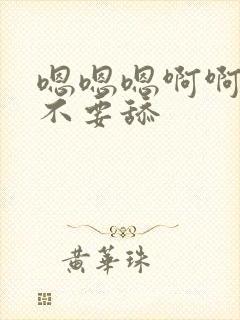 嗯嗯嗯啊啊
不要舔
黄华珠